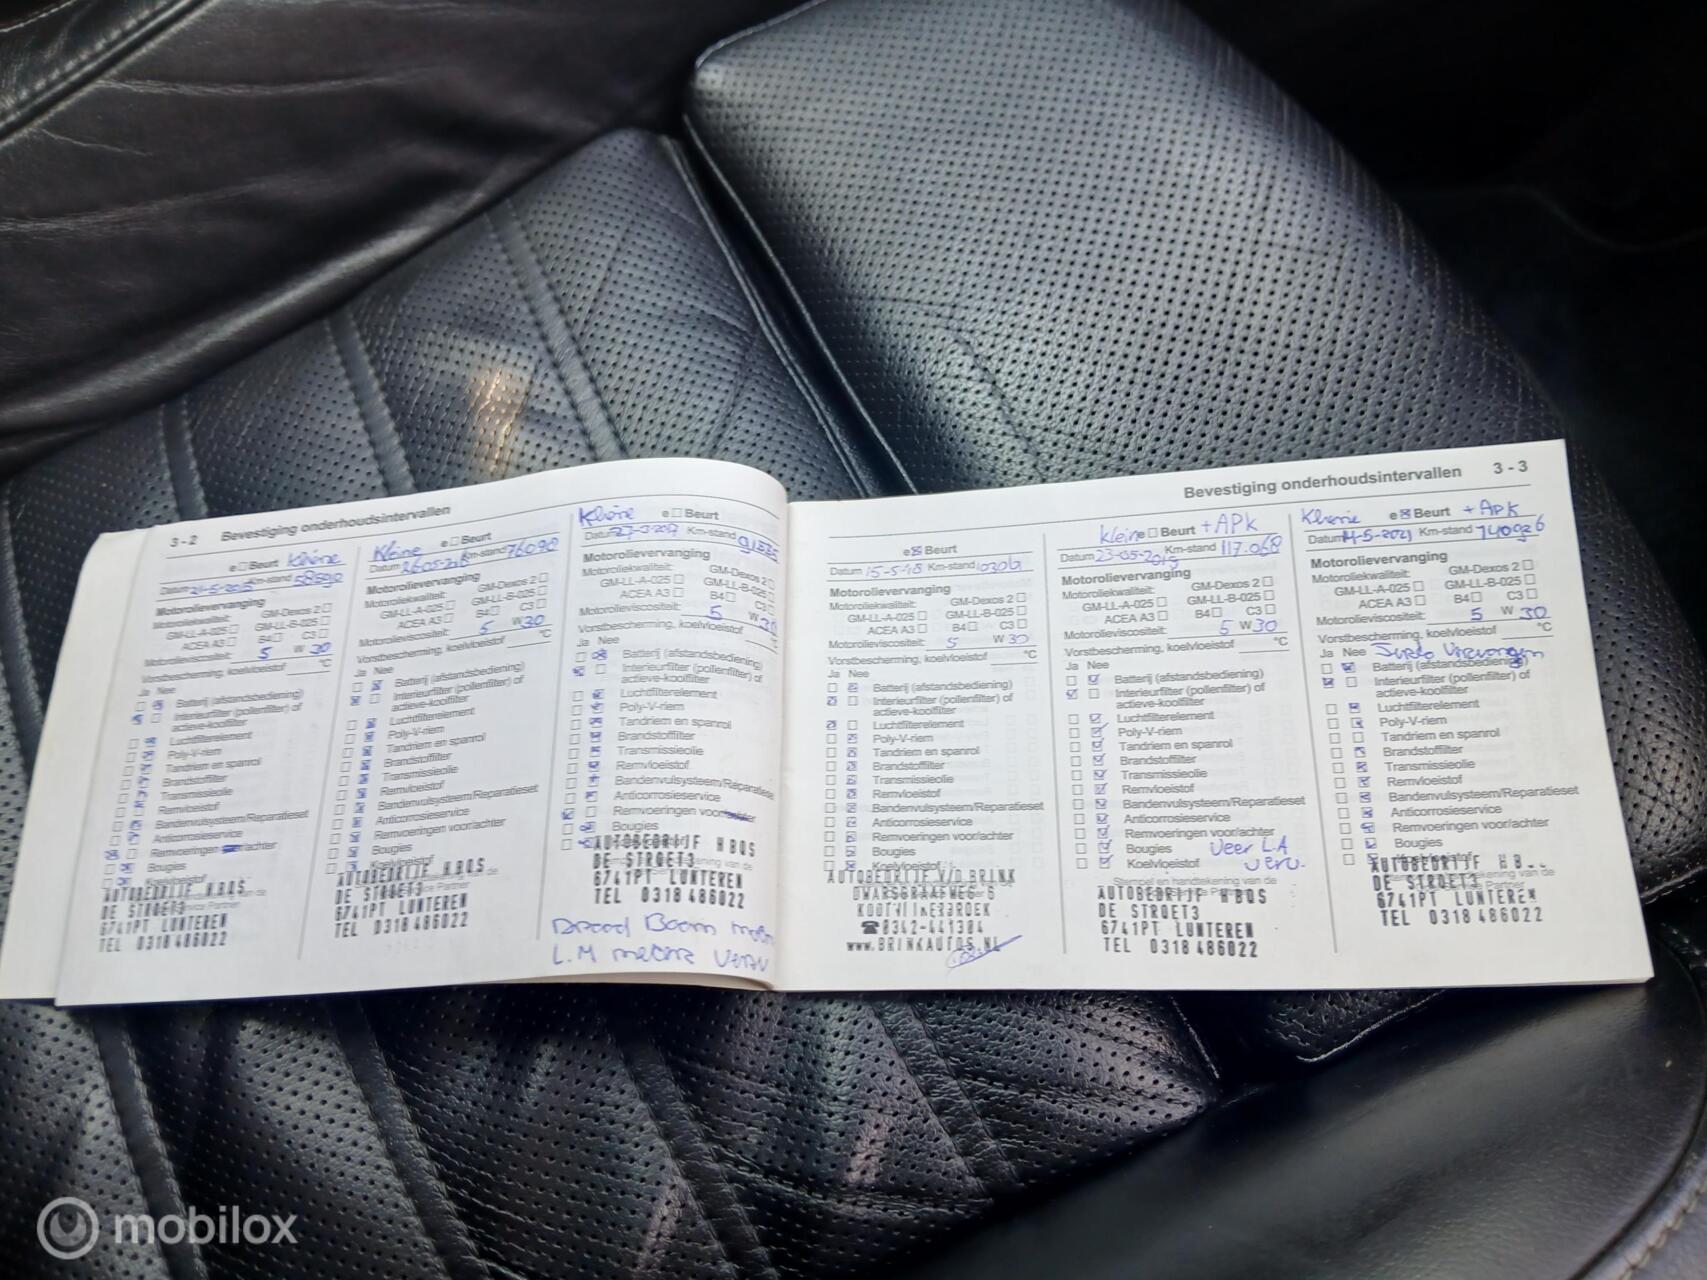 3 - 2 Bevestiging onderhoudsintervallen
e Beurt Kleine
Datum 21-5-2015 Km-stand 58590
Motorolievervanging
GM-Dexos 2
GM-LL-A-025 GM-LL-B-025
ACEA A3 B4 C3
Motorolieviscositeit: 5 W 30
Vorstbescherming, koelvloeistof °C
Ja Nee
Batterij (afstandsbediening)
Interieurfilter (pollenfilter) of
actieve-koolfilter
Luchtfilterelement
Poly-V-riem
Tandriem en spanrol
Brandstoffilter
Transmissieolie
Remvloeistof
Bandenvulsysteem/Reparatieset
Anticorrosieservice
Remvoeringen voor/achter
Bougies
AUTOBEDRIJF H.BOS
DE STROET3
6741PT LUNTEREN
TEL 0318 486022
Kleine e Beurt
Datum Km-stand 76090
Motorolievervanging
Motoroliekwaliteit: GM-Dexos 2
GM-LL-A-025 GM-LL-B-025
ACEA A3 B4 C3
Motorolieviscositeit: 5 W 30
Vorstbescherming, koelvloeistof °C
Ja Nee
Batterij (afstandsbediening)
Interieurfilter (pollenfilter) of
actieve-koolfilter
Luchtfilterelement
Poly-V-riem
Tandriem en spanrol
Brandstoffilter
Transmissieolie
Remvloeistof
Bandenvulsysteem/Reparatieset
Anticorrosieservice
Remvoeringen voor/achter
Bougies
Koelvloeistof
AUTOBEDRIJF H.BOS
DE STROET3
6741PT LUNTEREN
TEL 0318 486022
Kleine e Beurt
Datum 27-3-2017 Km-stand
Motorolievervanging
Motoroliekwaliteit: GM-Dexos 2
GM-LL-A-025 GM-LL-B-025
ACEA A3 B4 C3
Motorolieviscositeit: 5 W 30
Vorstbescherming, koelvloeistof °C
Ja Nee
Batterij (afstandsbediening)
Interieurfilter (pollenfilter) of
actieve-koolfilter
Luchtfilterelement
Poly-V-riem
Tandriem en spanrol
Brandstoffilter
Transmissieolie
Remvloeistof
Bandenvulsysteem/Reparatieset
Anticorrosieservice
Remvoeringen voor/achter
Bougies
AUTOBEDRIJF H BOS
DE STROET3
6741PT LUNTEREN
TEL 0318 486022
Draad Boom
L.M
Bevestiging onderhoudsintervallen 3 - 3
e Beurt
Datum 15-5-18 Km-stand
Motorolievervanging
Motoroliekwaliteit: GM-Dexos 2
GM-LL-A-025 GM-LL-B-025
ACEA A3 B4 C3
Motorolieviscositeit: 5 W 30
Vorstbescherming, koelvloeistof °C
Ja Nee
Batterij (afstandsbediening)
Interieurfilter (pollenfilter) of
actieve-koolfilter
Luchtfilterelement
Poly-V-riem
Tandriem en spanrol
Brandstoffilter
Transmissieolie
Remvloeistof
Bandenvulsysteem/Reparatieset
Anticorrosieservice
Remvoeringen voor/achter
Bougies
Koelvloeistof
AUTOBEDRIJF V/D BRINK
DWARSGRAAFWEG 6
KOOTWIJKERBROEK
☎0342-441304
www.BRINKAUTOS.NL
kleine e Beurt + APK
Datum 23-05-2019 Km-stand 117.068
Motorolievervanging
Motoroliekwaliteit: GM-Dexos 2
GM-LL-A-025 GM-LL-B-025
ACEA A3 B4 C3
Motorolieviscositeit: 5 W 30
Vorstbescherming, koelvloeistof °C
Ja Nee
Batterij (afstandsbediening)
Interieurfilter (pollenfilter) of
actieve-koolfilter
Luchtfilterelement
Poly-V-riem
Tandriem en spanrol
Brandstoffilter
Transmissieolie
Remvloeistof
Bandenvulsysteem/Reparatieset
Anticorrosieservice
Remvoeringen voor/achter
Bougies Veer L.A
Koelvloeistof verv.
Stempel en handtekening van de
AUTOBEDRIJF H BOS
DE STROET3
6741PT LUNTEREN
TEL 0318 486022
Kleine e Beurt + APK
Datum Km-stand 140026
Motorolievervanging
Motoroliekwaliteit: GM-Dexos 2
GM-LL-A-025 GM-LL-B-025
ACEA A3 B4 C3
Motorolieviscositeit: 5 W 30
Vorstbescherming, koelvloeistof °C
Ja Nee
Batterij (afstandsbediening)
Interieurfilter (pollenfilter) of
actieve-koolfilter
Luchtfilterelement
Poly-V-riem
Tandriem en spanrol
Brandstoffilter
Transmissieolie
Remvloeistof
Bandenvulsysteem/Reparatieset
Anticorrosieservice
Remvoeringen voor/achter
Bougies
Koelvloeistof
AUTOBEDRIJF H B
DE STROET3
6741PT LUNTEREN
TEL 0318 486022
mobilox